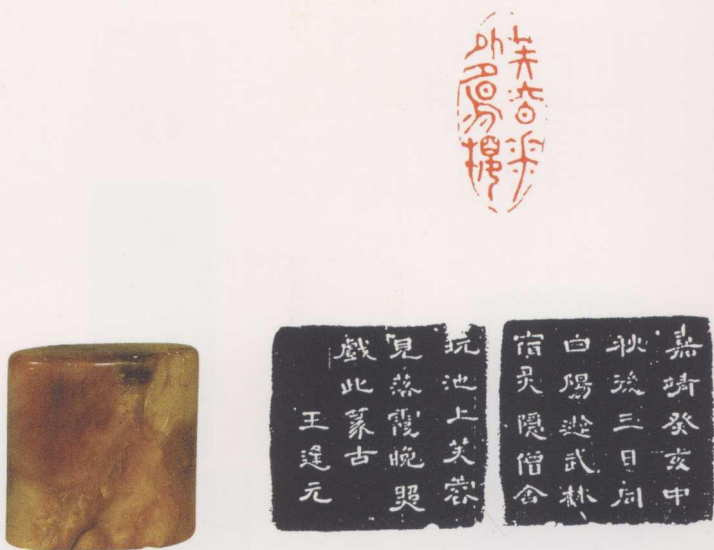 嘉靖癸亥中
秋後三日同
白陽遊武林
宿灵隱僧舍
玩池上芙蓉
見落霞晚照
戲此篆古
王逢元